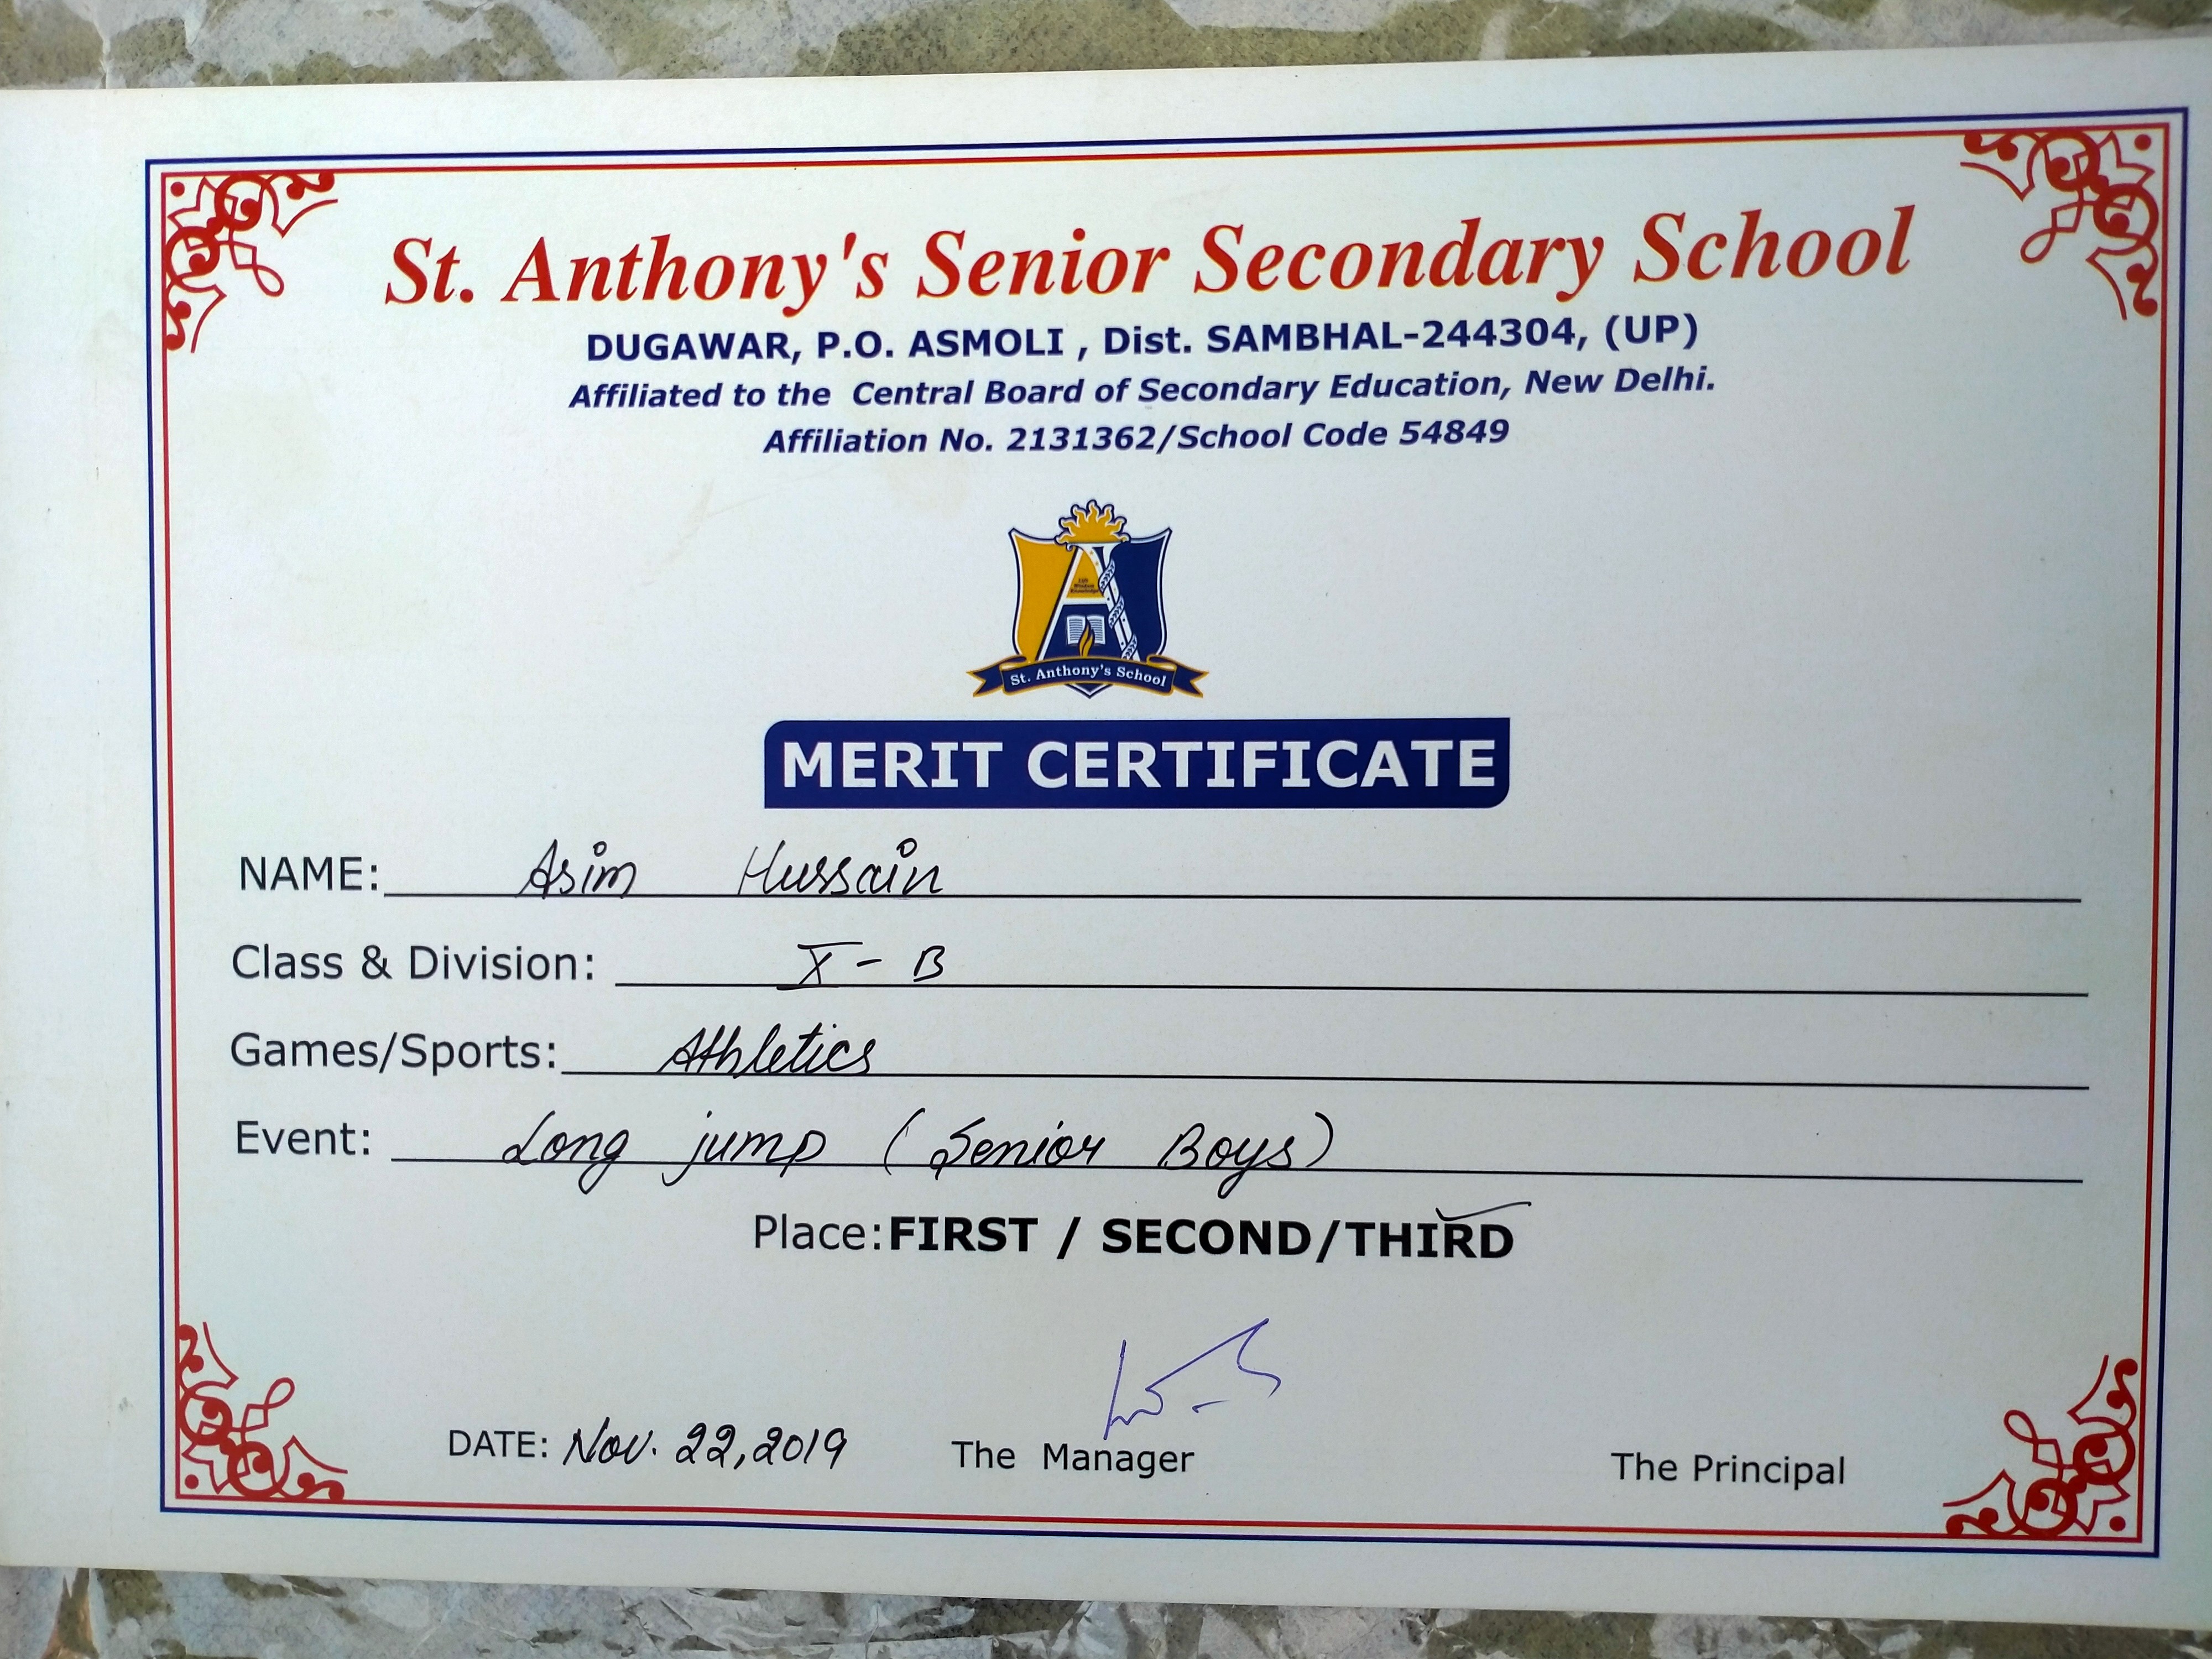 St. Anthony's Senior Secondary School
DUGAWAR, P.O. ASMOLI , Dist. SAMBHAL-244304, (UP)
Affiliated to the Central Board of Secondary Education, New Delhi.
Affiliation No. 2131362/School Code 54849
St. Anthony's School
MERIT CERTIFICATE
NAME: Asim Hussain
Class & Division: X - B
Games/Sports: Athletics
Event: Long jump (Senior Boys)
Place:FIRST / SECOND/THIRD
DATE: Nov. 22,2019 The Manager The Principal